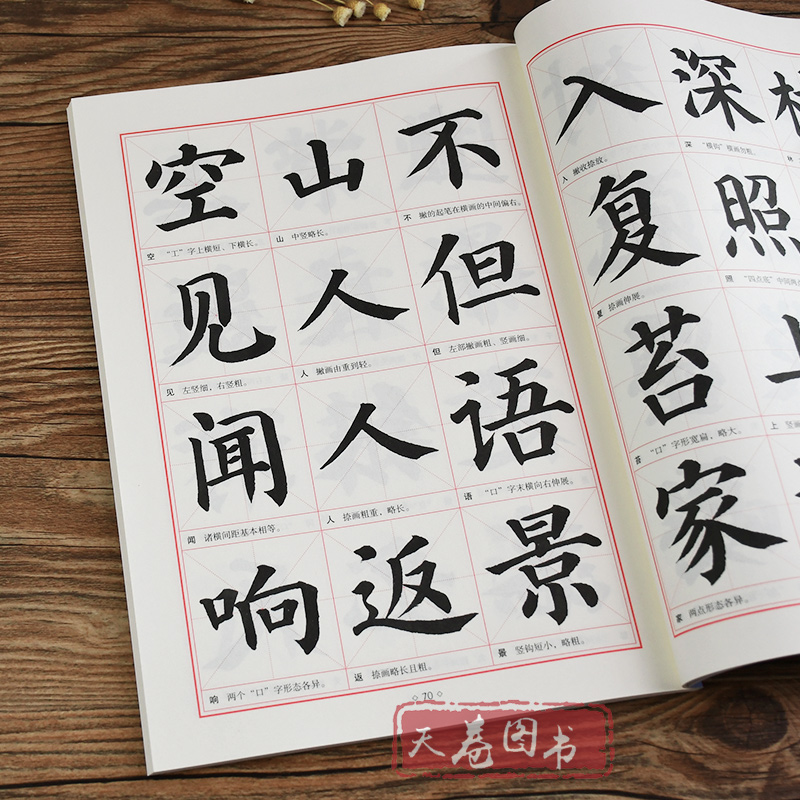 空 山 不
空 “工”字上横短、下横长。
山 中竖略长。
不 撇的起笔在横画的中间偏右。
见 人 但
见 左竖细，右竖粗。
人 撇画由重到轻。
但 左部撇画粗、竖画细。
闻 人 语
闻 诸横间距基本相等。
人 捺画粗重，略长。
语 “口”字末横向右伸展。
响 返 景
响 两个“口”字形态各异。
返 捺画略长且粗。
景 竖钩短小，略粗。
70
入 深
入 撇收捺放。
深 “横钩”横画勿粗。
林
复 照
复 捺画伸展。
照 “四点底”中间两点
苔 上
苔 “口”字形宽扁，略大。
上 竖画
家
家 两点形态各异。
天苍图书